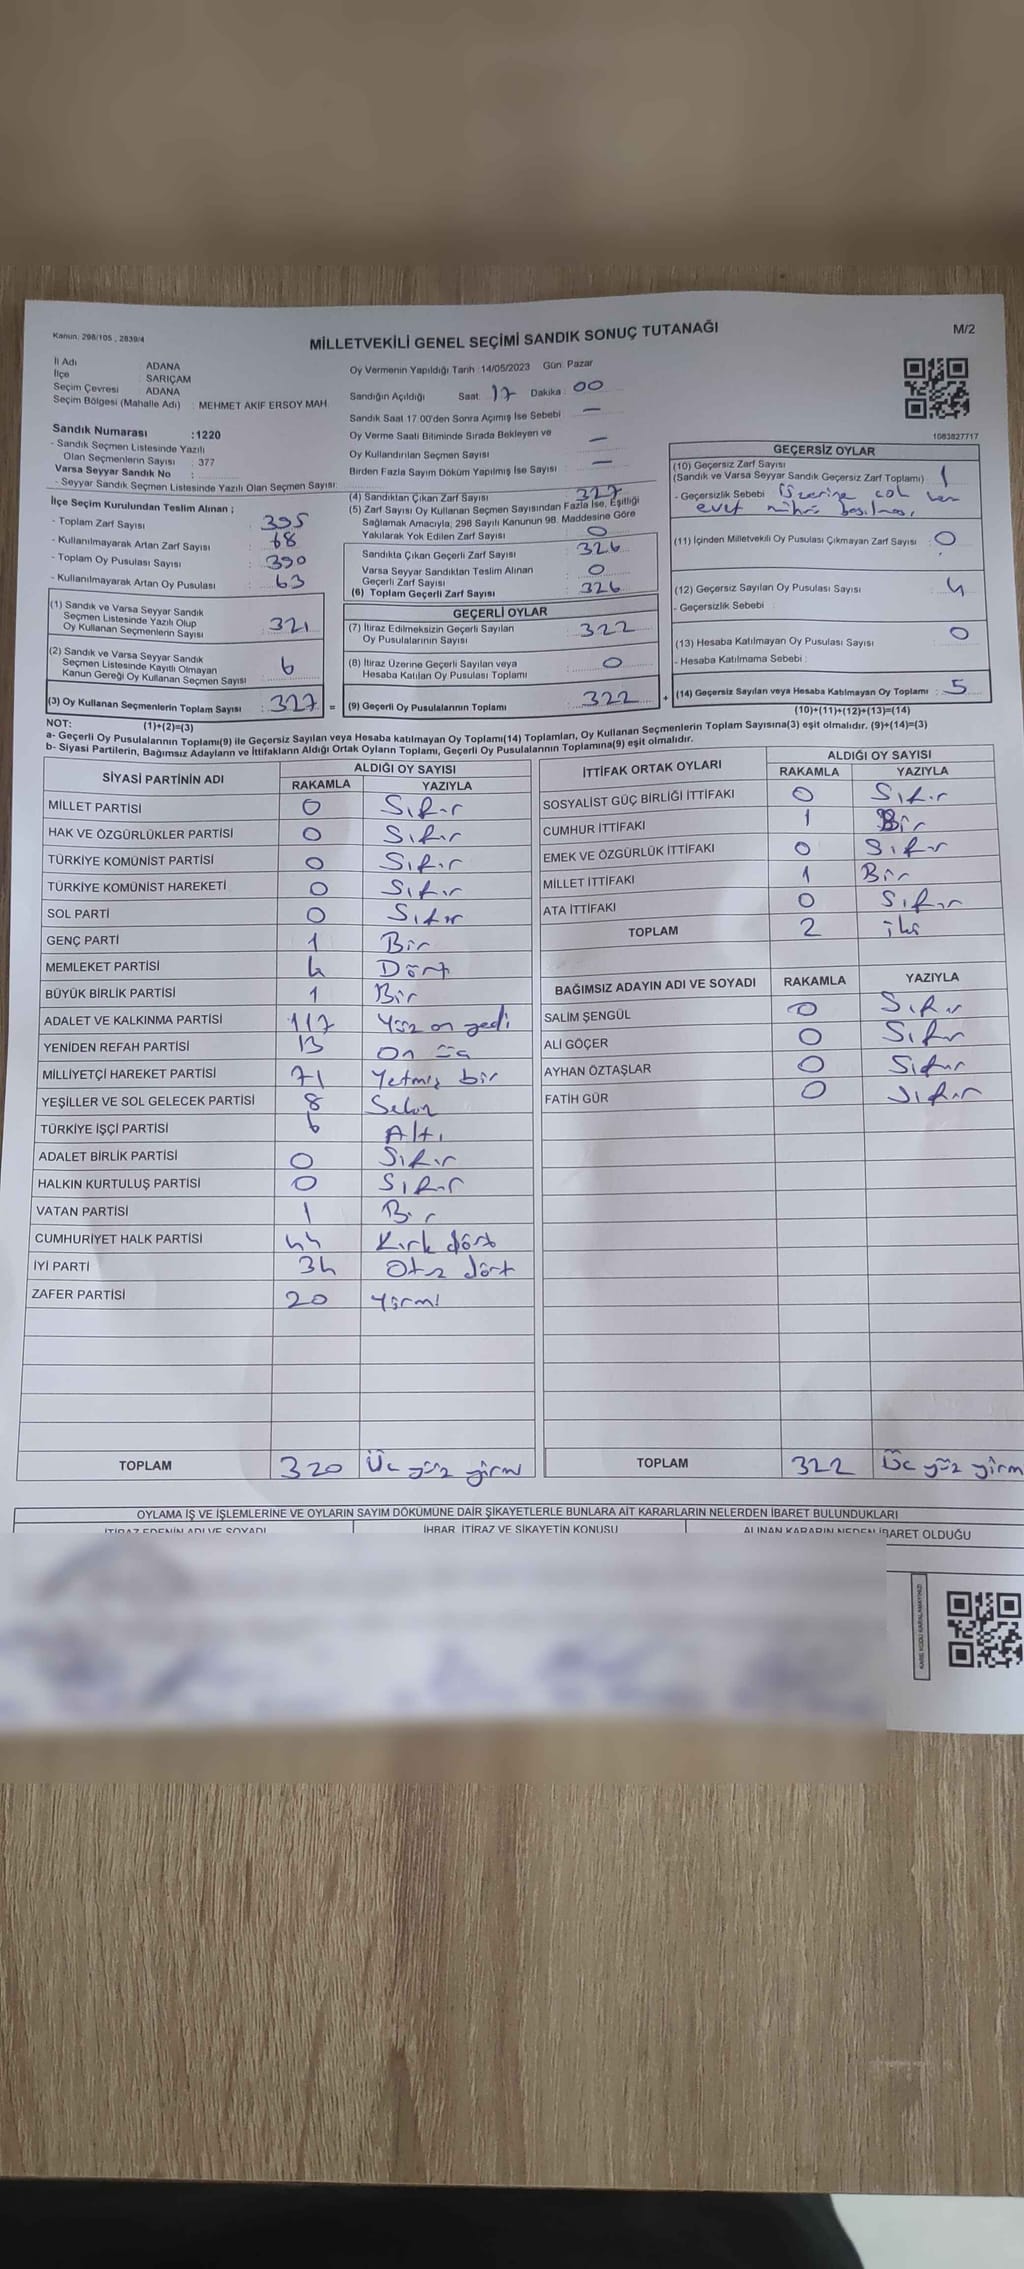 Kanun: 298/105 , 2839/4
MİLLETVEKİLİ GENEL SEÇİMİ SANDIK SONUÇ TUTANAĞI
M/2
İl Adı ADANA
İlçe SARIÇAM
Seçim Çevresi ADANA
Seçim Bölgesi (Mahalle Adı) : MEHMET AKİF ERSOY MAH.
Sandık Numarası :1220
- Sandık Seçmen Listesinde Yazılı
Olan Seçmenlerin Sayısı : 377
Varsa Seyyar Sandık No :
- Seyyar Sandık Seçmen Listesinde Yazılı Olan Seçmen Sayısı:
Oy Vermenin Yapıldığı Tarih :14/05/2023 Gün: Pazar
Sandığın Açıldığı Saat: 17 Dakika : 00
Sandık Saat 17.00'den Sonra Açımış İse Sebebi : —
Oy Verme Saati Bitiminde Sırada Bekleyen ve
Oy Kullandırılan Seçmen Sayısı : —
Birden Fazla Sayım Döküm Yapılmış İse Sayısı : —
1083827717
İlçe Seçim Kurulundan Teslim Alınan ;
- Toplam Zarf Sayısı : 395
- Kullanılmayarak Artan Zarf Sayısı : 68
- Toplam Oy Pusulası Sayısı : 390
- Kullanılmayarak Artan Oy Pusulası : 63
(1) Sandık ve Varsa Seyyar Sandık
Seçmen Listesinde Yazılı Olup
Oy Kullanan Seçmenlerin Sayısı : 321
(2) Sandık ve Varsa Seyyar Sandık
Seçmen Listesinde Kayıtlı Olmayan
Kanun Gereği Oy Kullanan Seçmen Sayısı : 6
(3) Oy Kullanan Seçmenlerin Toplam Sayısı : 327 =
(1)+(2)=(3)
(4) Sandıktan Çıkan Zarf Sayısı 327
(5) Zarf Sayısı Oy Kullanan Seçmen Sayısından Fazla İse, Eşitliği
Sağlamak Amacıyla, 298 Sayılı Kanunun 98. Maddesine Göre
Yakılarak Yok Edilen Zarf Sayısı : 0
Sandıkta Çıkan Geçerli Zarf Sayısı : 326
Varsa Seyyar Sandıktan Teslim Alınan
Geçerli Zarf Sayısı : 0
(6) Toplam Geçerli Zarf Sayısı : 326
GEÇERLİ OYLAR
(7) İtiraz Edilmeksizin Geçerli Sayılan
Oy Pusulalarının Sayısı : 322
(8) İtiraz Üzerine Geçerli Sayılan veya
Hesaba Katılan Oy Pusulası Toplamı : 0
(9) Geçerli Oy Pusulalarının Toplamı : 322 +
GEÇERSİZ OYLAR
(10) Geçersiz Zarf Sayısı
(Sandık ve Varsa Seyyar Sandık Geçersiz Zarf Toplamı) : 1
- Geçersizlik Sebebi :
evet mührü
(11) İçinden Milletvekili Oy Pusulası Çıkmayan Zarf Sayısı : 0
(12) Geçersiz Sayılan Oy Pusulası Sayısı : 4
- Geçersizlik Sebebi :
(13) Hesaba Katılmayan Oy Pusulası Sayısı : 0
- Hesaba Katılmama Sebebi :
(14) Geçersiz Sayılan veya Hesaba Katılmayan Oy Toplamı : 5
(10)+(11)+(12)+(13)=(14)
NOT:
a- Geçerli Oy Pusulalarının Toplamı(9) ile Geçersiz Sayılan veya Hesaba katılmayan Oy Toplamı(14) Toplamları, Oy Kullanan Seçmenlerin Toplam Sayısına(3) eşit olmalıdır. (9)+(14)=(3)
b- Siyasi Partilerin, Bağımsız Adayların ve İttifakların Aldığı Ortak Oyların Toplamı, Geçerli Oy Pusulalarının Toplamına(9) eşit olmalıdır.
SİYASİ PARTİNİN ADI ALDIĞI OY SAYISI
RAKAMLA YAZIYLA
MİLLET PARTİSİ 0 Sıfır
HAK VE ÖZGÜRLÜKLER PARTİSİ 0 Sıfır
TÜRKİYE KOMÜNİST PARTİSİ 0 Sıfır
TÜRKİYE KOMÜNİST HAREKETİ 0 Sıfır
SOL PARTİ 0 Sıfır
GENÇ PARTİ 1 Bir
MEMLEKET PARTİSİ 4 Dört
BÜYÜK BİRLİK PARTİSİ 1 Bir
ADALET VE KALKINMA PARTİSİ 117 Yüz on yedi
YENİDEN REFAH PARTİSİ 13 On üç
MİLLİYETÇİ HAREKET PARTİSİ 71 Yetmiş bir
YEŞİLLER VE SOL GELECEK PARTİSİ 8 Sekiz
TÜRKİYE İŞÇİ PARTİSİ 6 Altı
ADALET BİRLİK PARTİSİ 0 Sıfır
HALKIN KURTULUŞ PARTİSİ 0 Sıfır
VATAN PARTİSİ 1 Bir
CUMHURİYET HALK PARTİSİ 44 Kırk dört
İYİ PARTİ 34 Otuz dört
ZAFER PARTİSİ 20 Yirmi
TOPLAM 320 Üç yüz yirmi
İTTİFAK ORTAK OYLARI ALDIĞI OY SAYISI
RAKAMLA YAZIYLA
SOSYALİST GÜÇ BİRLİĞİ İTTİFAKI 0 Sıfır
CUMHUR İTTİFAKI 1 Bir
EMEK VE ÖZGÜRLÜK İTTİFAKI 0 Sıfır
MİLLET İTTİFAKI 1 Bir
ATA İTTİFAKI 0 Sıfır
TOPLAM 2 iki
BAĞIMSIZ ADAYIN ADI VE SOYADI RAKAMLA YAZIYLA
SALİM ŞENGÜL 0 Sıfır
ALİ GÖÇER 0 Sıfır
AYHAN ÖZTAŞLAR 0 Sıfır
FATİH GÜR 0 Sıfır
TOPLAM 322 Üç yüz yirm
OYLAMA İŞ VE İŞLEMLERİNE VE OYLARIN SAYIM DÖKÜMÜNE DAİR ŞİKAYETLERLE BUNLARA AİT KARARLARIN NELERDEN İBARET BULUNDUKLARI
İTİRAZ EDENİN ADI VE SOYADI İHBAR, İTİRAZ VE ŞİKAYETİN KONUSU ALINAN KARARIN NEDEN İBARET OLDUĞU
KARE KODU KARALAMAYINIZ!